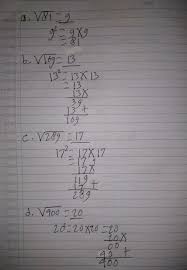 a. √81 = 9
9² = 9×9
= 81
b. √169 = 13
13² = 13×13
= 13
13×
39
13 +
169
c. √289 = 17
17² = 17×17
= 17
17×
119
17 +
289
d. √400 = 20
20 = 20×20 = 20
20×
00
40 +
400